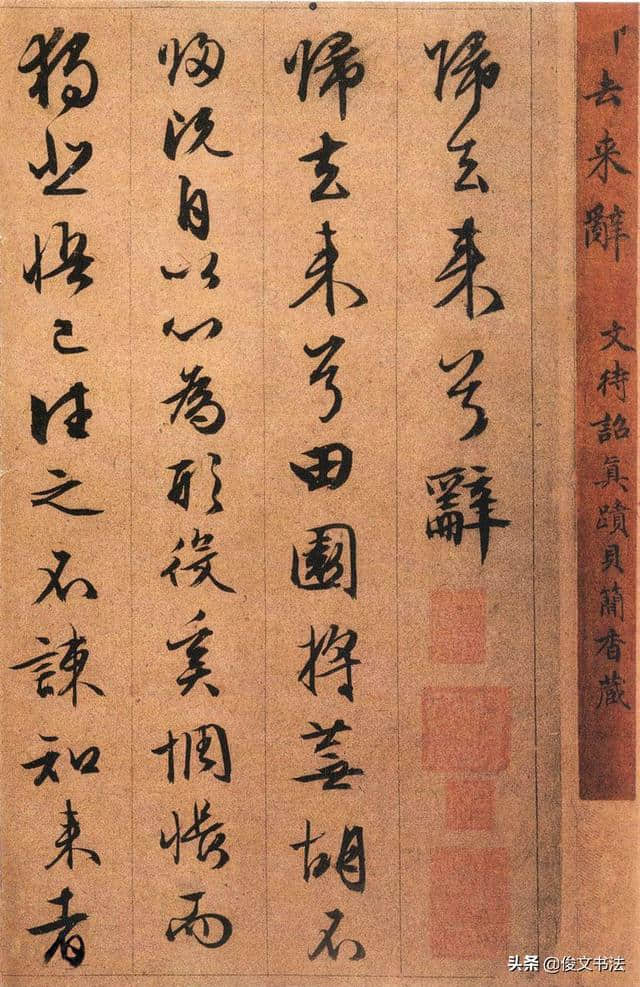 去来辭 文待詔真蹟貝簡香藏
歸去来兮辭
歸去来兮田園将蕪胡不
歸既自以心為形役奚惆悵而
獨悲悟已往之不諫知来者
头条 @俊文书法